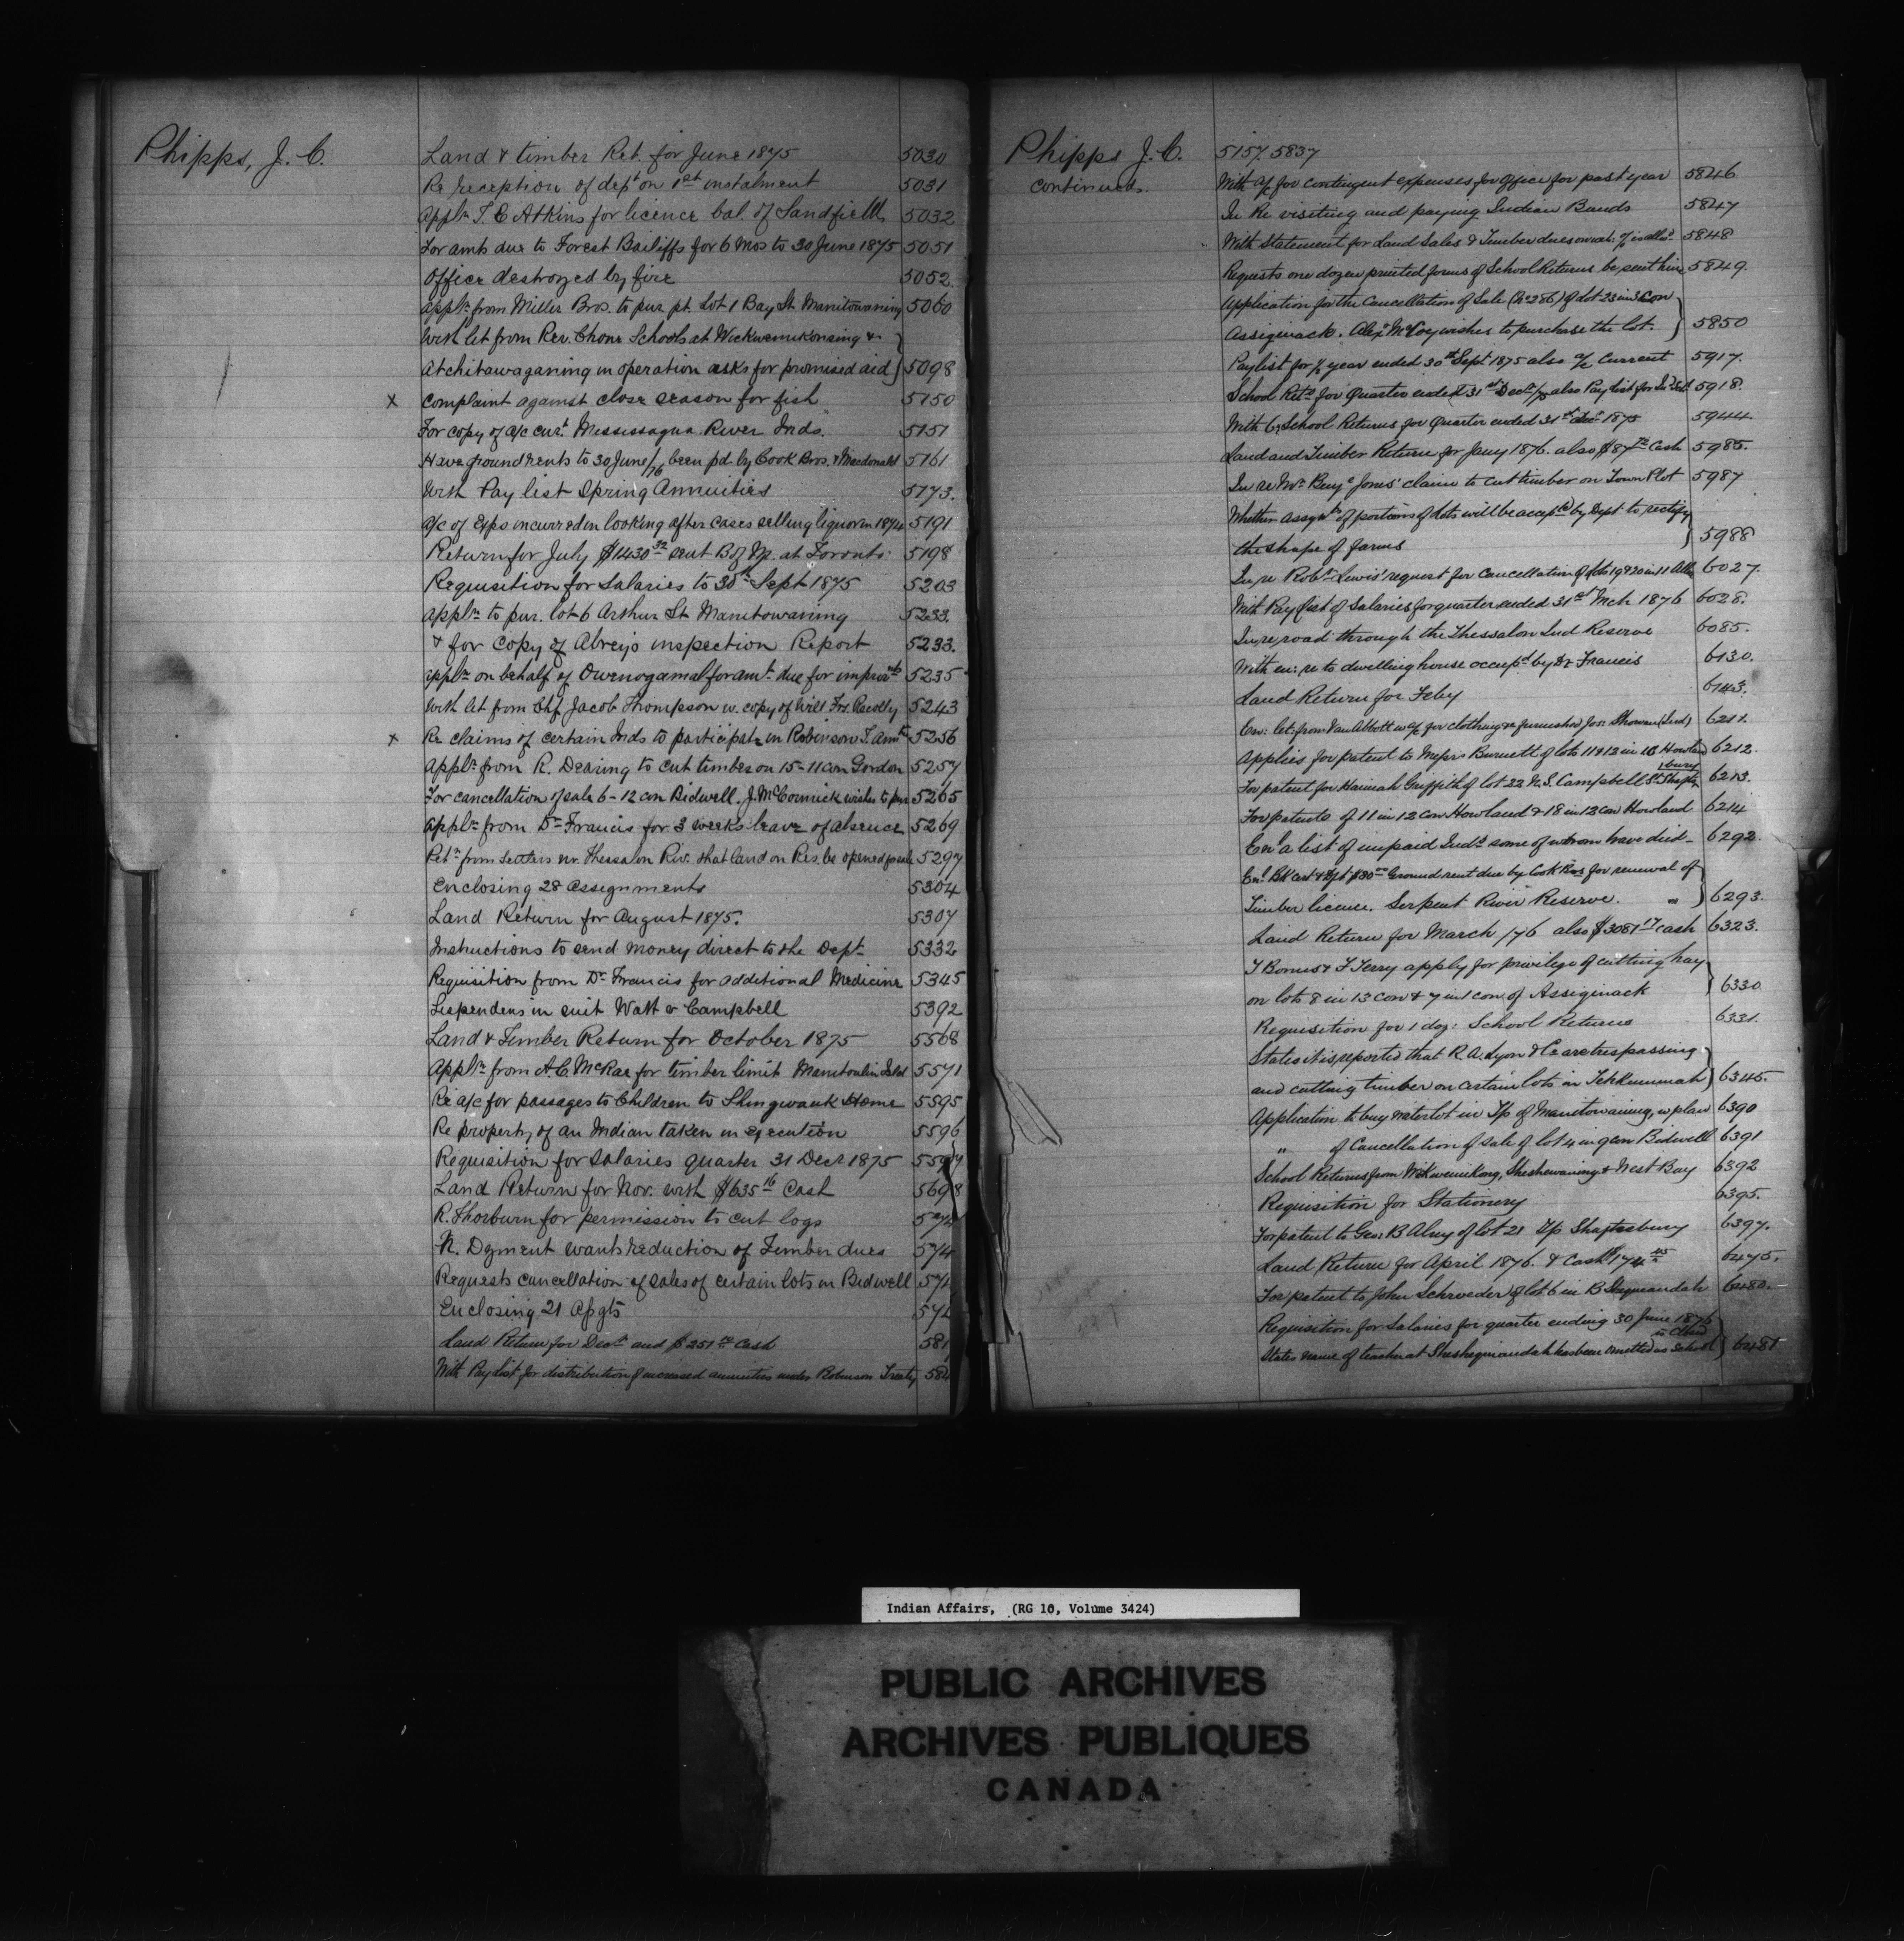 Phipps, J. C.
Land & timber Ret. for June 1875 5030
Re reception of dept on 1st instalment 5031
Appln T. C Atkins for licence bal. of Sandfield 5032
For amts due to Forest Bailiffs for 6 Mos to 30 June 1875 5051
Office destroyed by fire 5052.
Appln from Miller Bros. to pur. pt. Lot 1 Bay St. Manitowaning 5060
With let from Rev. Chone Schools at Wickwemikonsing &
Atchitawaganing in operation asks for promised aid 5098
x Complaint against close season for fish 5150
For copy of a/c curt. Mississagua River Inds. 5151
Have ground rents to 30 June/76 been pd. by Cook Bros. & Macdonald 5161
With Pay list Spring Annuities 5173.
A/c of Exps incurred in looking after cases selling liquor in 1874 5191
Return for July $1430 32 sent B of M. at Toronto 5198
Requisition for Salaries to 30th Sept 1875 5203
Appln to pur. lot 6 Arthur St Manitowaning 5233.
& for copy of Abrey's inspection Report 5233.
Appln on behalf of Owenogamal for amt. due for improvts 5235
With let from Chf Jacob Thompson w. copy of Will Frs. Reilly 5243
x Re claims of certain Inds to participate in Robinson T. Annts 5256
Appln from R. Dearing to cut timber on 15-11 con Gordon 5257
For cancellation of sale 6-12 con Bidwell. J. McCormick wishes to pur 5265
Appln from Dr Francis for 3 weeks leave of absence 5269
Petn from Settlers nr. Thessalon Riv. that land on Res. be opened for sale 5297
Enclosing 28 Assignments 5304
Land Return for August 1875. 5307
Instructions to send money direct to the Dept 5332
Requisition from Dr Francis for additional Medicine 5345
Lispendens in suit Watt v Campbell 5392
Land & Timber Return for October 1875 5568
Appln from A. C. McRae for timber limit Manitoulin Isld 5571
Re a/c for passages to Children to Shingwauk Home 5595
Re property of an Indian taken in execution 5596
Requisition for Salaries quarter 31 Decr 1875 5597
Land Return for Nov. with $635 16 Cash 5698
R. Thorburn for permission to cut logs 574
N. Dyment wants reduction of Timber dues 574
Requests cancellation of sales of certain lots in Bidwell 574
Enclosing 21 Asgts 574
Land Return for Decr and $251 Cash 581
With Pay list for distribution of increased annuities under Robinson Treaty 584
Phipps J. C. 5157. 5837
Continued.
With a/c for contingent expenses for Office for past year 5846
In Re visiting and paying Indian Bands 5847
With Statement for Land Sales & Timber dues 5848
Requests one dozen printed forms of School Returns be sent him 5849.
Application for the Cancellation of Sale (No 286) of Lot 23 in 3 Con
Assiginack. Alexr McCoy wishes to purchase the lot. 5850
Paylist for 1/2 year ended 30th Sept 1875 also a/c Current 5917.
School Retn for Quarter ended 31st Decr /75 also Pay list for 5918.
With 6 School Returns for Quarter ended 31st Decr 1875 5944
Land and Timber Return for Jany 1876. also $87 Cash 5985.
In re Mr Benje Jones' claim to cut timber on Town Plot 5987
Whether assignts of portions of lots will be accepd by Dept to rectify
the shape of farms 5988
In re Robt Lewis' request for cancellation of lots 19 & 20 in 11 Allan 6027.
With Pay list of Salaries for quarter ended 31st Mch 1876 6028.
In re road through the Thessalon Ind Reserve 6085.
With en: re to dwelling house occupd by Dr Francis 6130.
Land Return for Feby 6143.
Enc: let: from Van Abbott w a/c for clothing &c furnished Jos: (Ind) 6211.
Applies for patent to Messrs Burnett of lots 11 & 12 in 10 Howland 6212.
For patent for Hannah Griffith of lot 22 N. S. Campbell St. Shaftesbury 6213.
For patents of 11 in 12 Con Howland & 18 in 12 Con Howland 6214
Enc a list of unpaid Inds some of whom have died 6292.
Enc Bk Cert of Dpt $80 Ground rent due by Cook Bros for renewal of
Timber licence. Serpent River Reserve. " 6293.
Land Return for March /76 also $3081 17 Cash 6323.
T Bonus & F Terry apply for privilege of cutting hay
on lots 8 in 13 con & 7 in 1 con of Assiginack 6330
Requisition for 1 doz: School Returns 6331.
States it is reported that R. A. Lyon & Co are trespassing
and cutting timber on certain lots in Tehkummah 6345.
Application to buy water lot in T/p of Manitowaning, w plan 6390
" of Cancellation of Sale of lot 4 in 9 con Bidwell 6391
School Returns from Wikwemikong, Sheshewaning & West Bay 6392
Requisition for Stationery 6395.
For patent to Geo: B Alney of lot 21 T/p Shaftesbury 6397.
Land Return for April 1876. & Cash $174 45 6475.
For patent to John Schroeder of lot 6 in B Sheguiandah 6480.
Requisition for Salaries for quarter ending 30 June 1876
States name of teacher at Sheshegwiandah has been omitted as School is closed 6481
Indian Affairs, (RG 10, Volume 3424)
PUBLIC ARCHIVES
ARCHIVES PUBLIQUES
CANADA